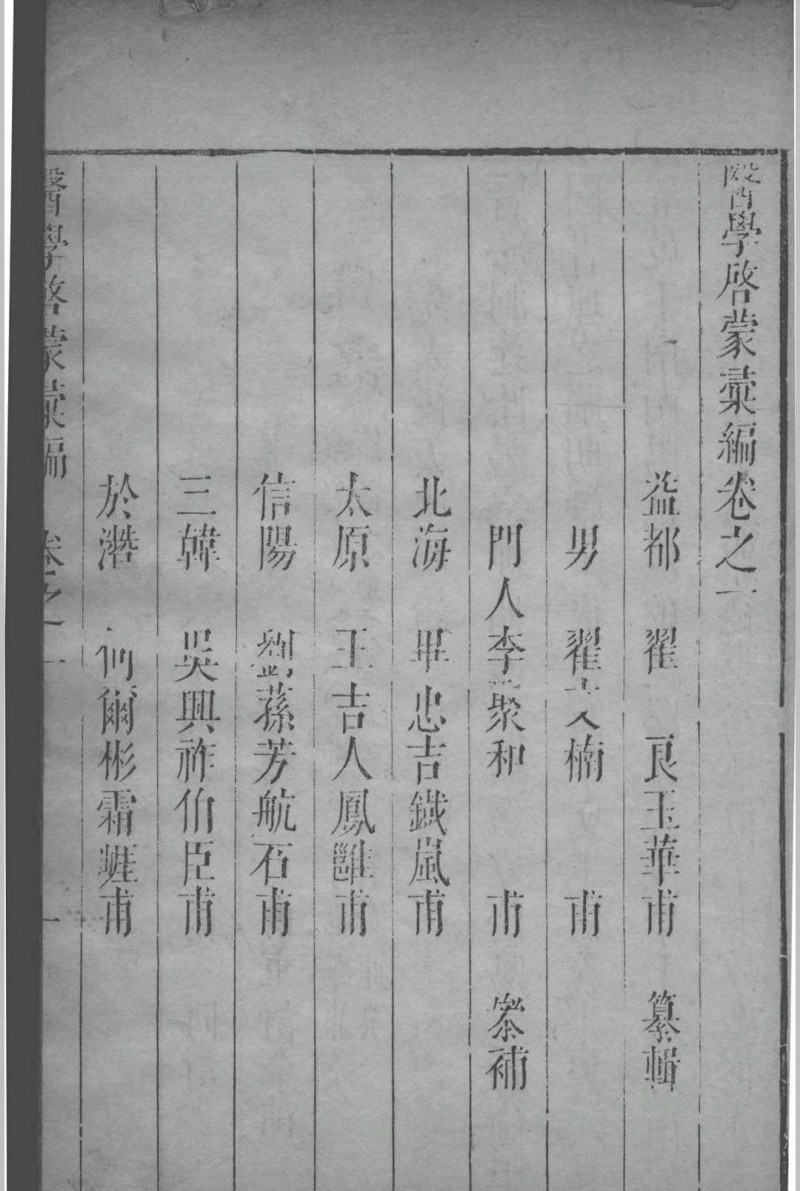 醫學啓蒙彙編卷之一
益都 翟 良玉華甫 纂輯
男 翟文楠 甫
門人李聚和 甫 叅補
北海 畢忠吉鐵嵐甫
太原 王吉人鳳雝甫
信陽 劉蓀芳航石甫
三韓 吳興祚伯臣甫
於潛 何爾彬霜崕甫
醫學啓蒙彙編 卷之一 一